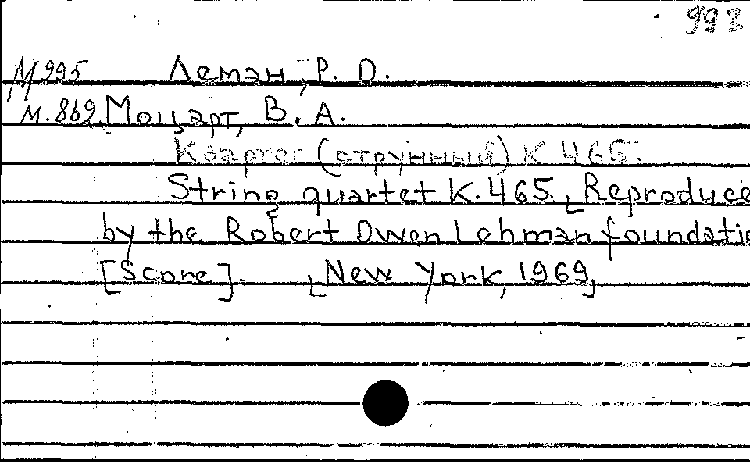 993
М 995 Леман, Р. О.
М. 869 Моцарт, В. А.
Квартет (струнный) К 465.
String quartet K. 465. [Reproduce
by the Robert Owen Lehman foundatio
[Score]. [New York, 1969]